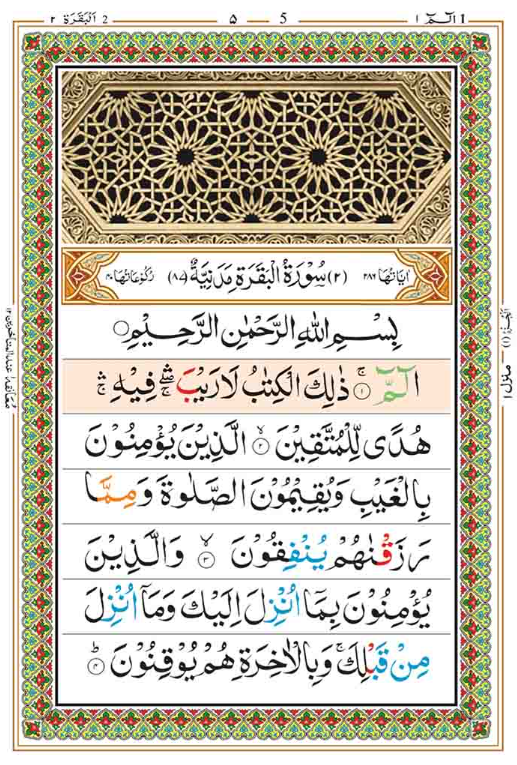 الٓمّٓ ١ 1
5 ۵
2 اَلْبَقَرَة ٢
اٰیَاتُهَا ٢٨٦
(٢) سُوْرَةُ الْبَقَرَةِ مَدَنِیَّةٌ (٨٧)
رُكُوْعَاتُهَا ٤٠
بِسْمِ اللّٰهِ الرَّحْمٰنِ الرَّحِیْمِ
الٓمّٓ ۚ ١ ذٰلِكَ الْكِتٰبُ لَا رَیْبَ ۛۖۚ فِیْهِ ۛۚ
هُدًی لِّلْمُتَّقِیْنَ ۙ ٢ الَّذِیْنَ یُؤْمِنُوْنَ
بِالْغَیْبِ وَیُقِیْمُوْنَ الصَّلٰوةَ وَمِمَّا
رَزَقْنٰهُمْ یُنْفِقُوْنَ ۙ ٣ وَالَّذِیْنَ
یُؤْمِنُوْنَ بِمَاۤ اُنْزِلَ اِلَیْكَ وَمَاۤ اُنْزِلَ
مِنْ قَبْلِكَ ۚ وَبِالْاٰخِرَةِ هُمْ یُوْقِنُوْنَ ؕ ٤
اَلْجُزْءُ (١)
منزل ١